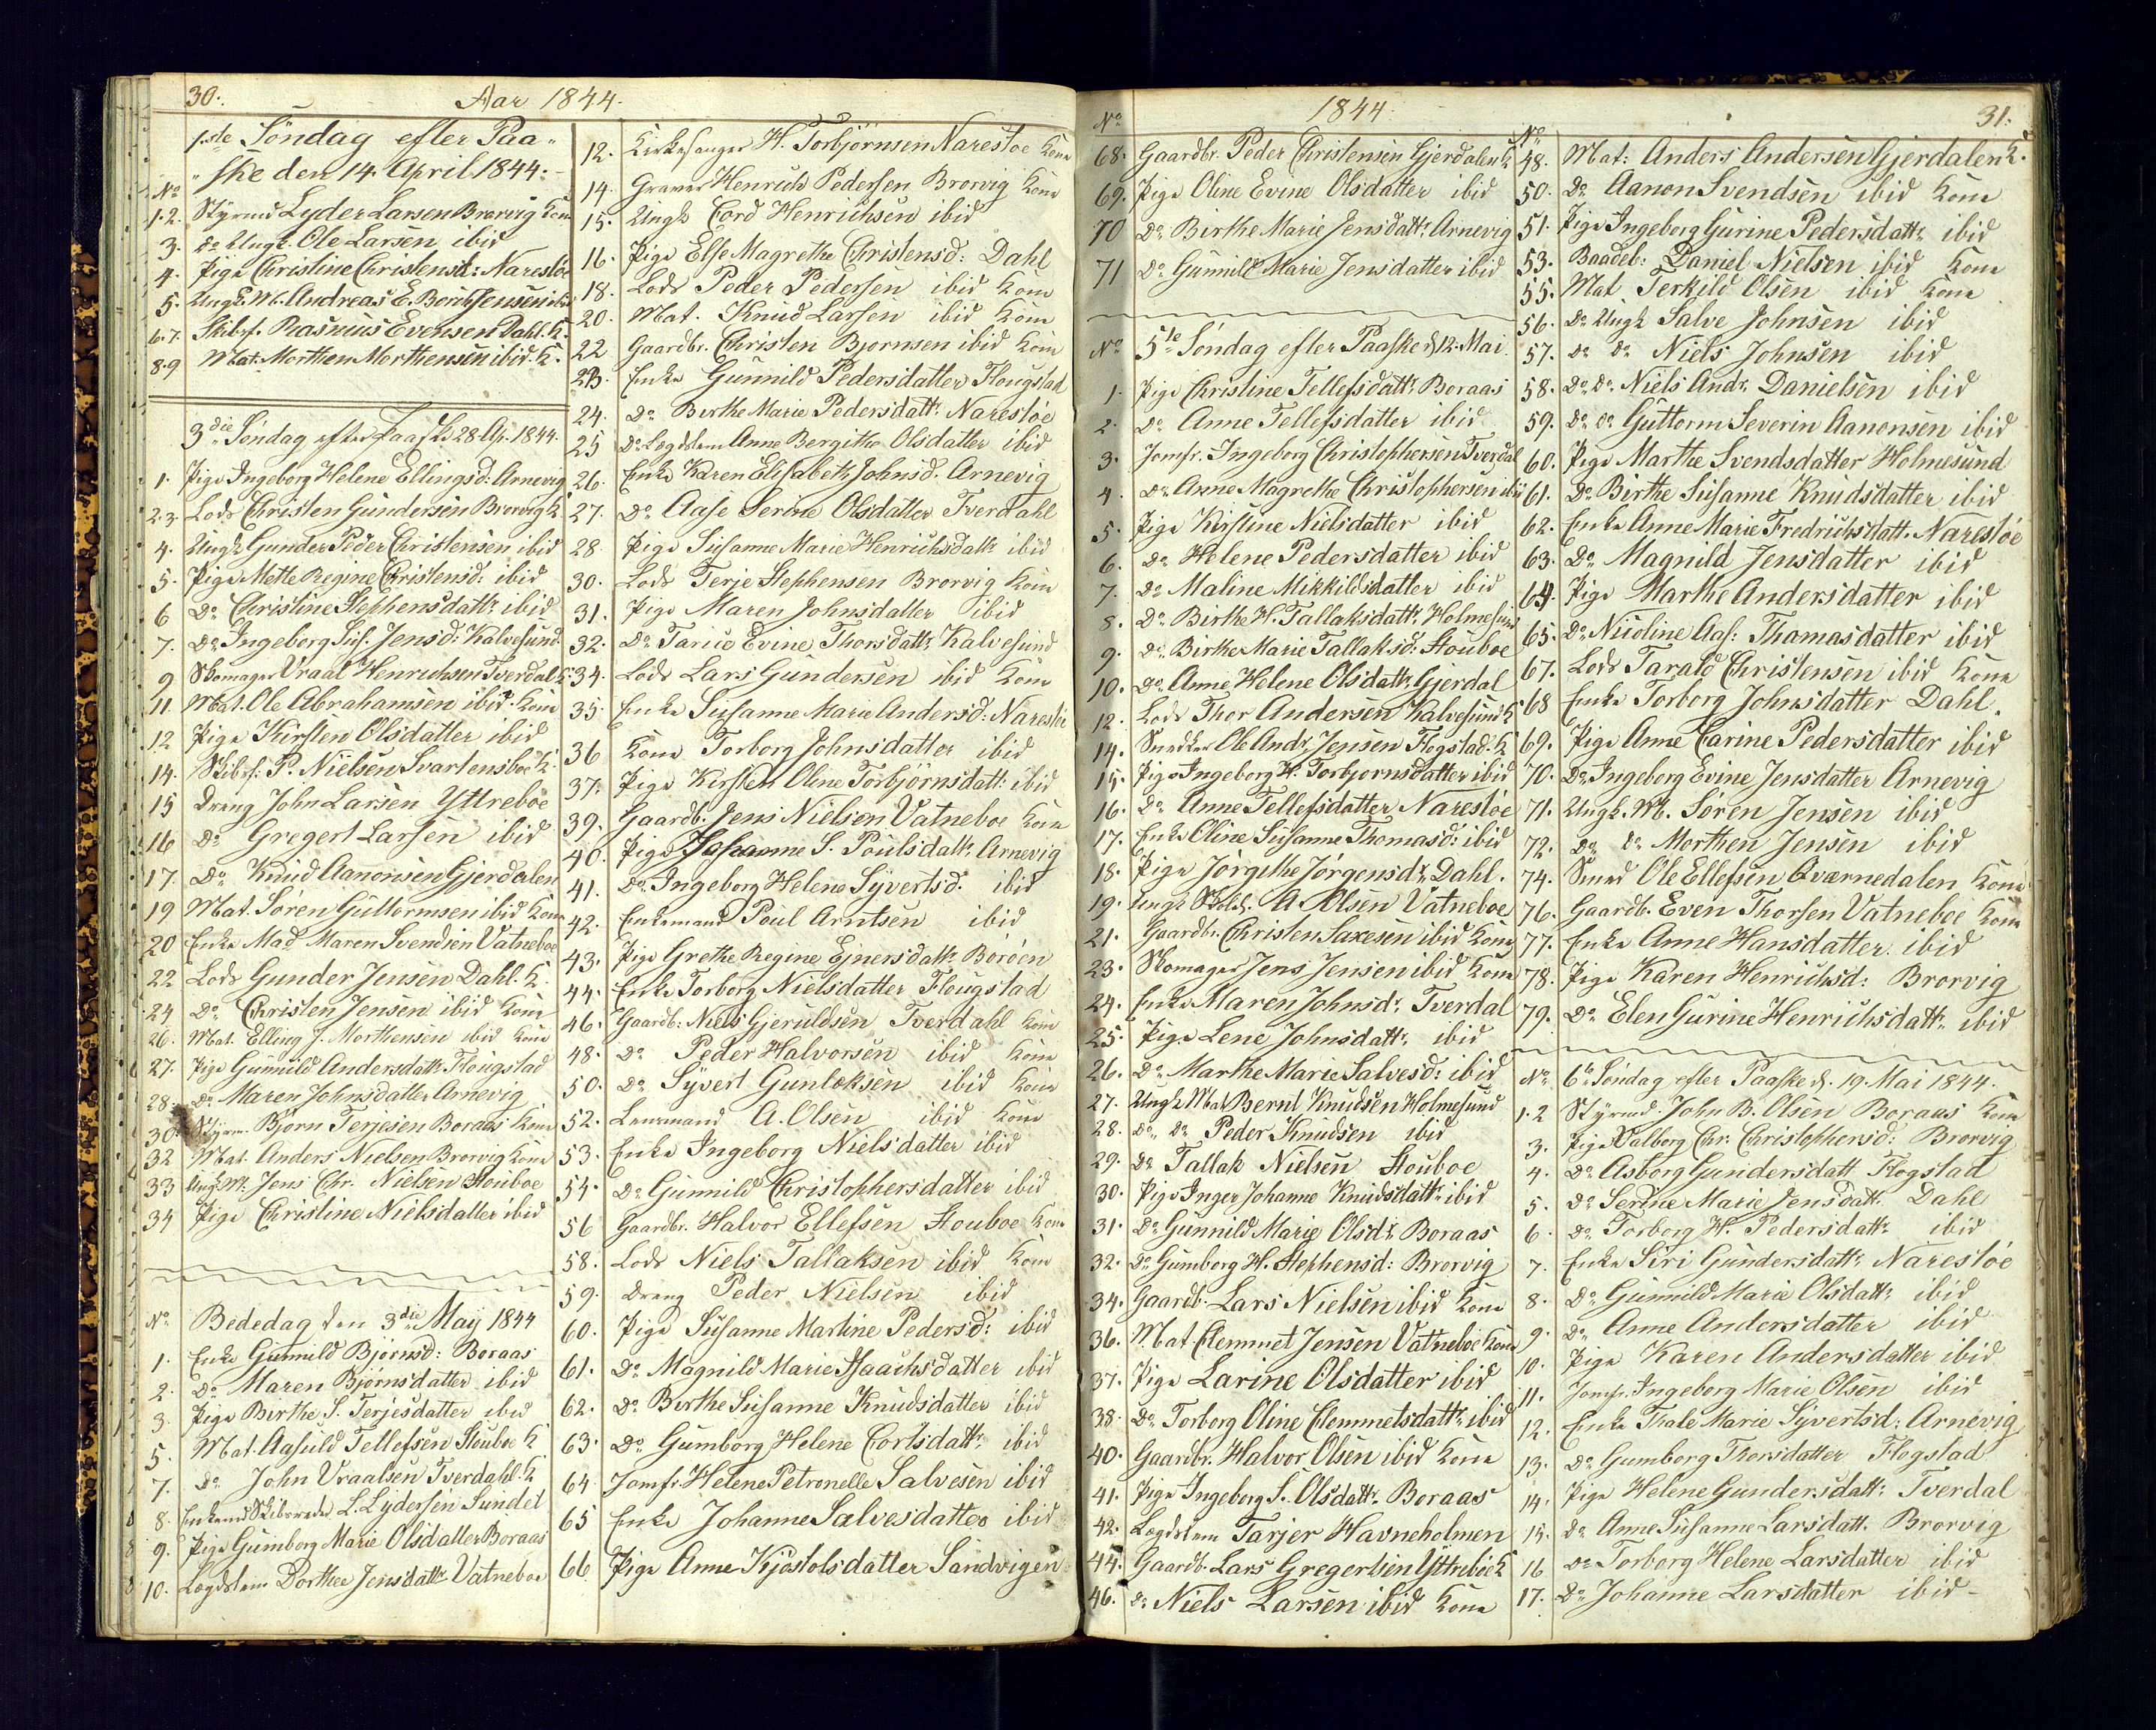 30.
Aar 1844.
1ste Söndag efter Paa-
ske den 14. April 1844.
No
1.2. Styrmd Lyder Larsen Brorvig Kone
3. Do Ungk. Ole Larsen ibid
4. Pige Christine Christensd: Narestöe
5. Ungk. M. Andreas E. Berntsensen ibid
6.7. Skibsf. Rasmus Evensen Dahl. K.
8.9 Mat. Morthen Morthensen ibid. K.
3die Söndag efter Paaske 28 Ap. 1844.
1. Pige Ingeborg Helene Ellingsd: Arnevig
2.3. Lods Christen Gundersen Brorvig K
4. Ungk Gunder Peder Christensen ibid
5. Pige Mette Regine Christensd: ibid
6 Do Christine Stephensdattr ibid
7. Do Ingeborg Sus. Jensd: Kalvesund
9 Skomager Vraal Henrichsen Tverdal K.
11. Mat. Ole Abrahamsen ibid. Kone
12 Pige Kirsten Olsdatter ibid
14. Skibsf: P. Nielsen Svartensboe K.
15 Dreng John Larsen Yttreböe
16 Do Gregert Larsen ibid
17. Do Knud Aanonsen Gjerdalen
19 Mat. Sören Guttormsen ibid Kone
20 Enke Mad Maren Svendsen Vatneboe
22 Lods Gunder Jensen Dahl. K.
24 Do Christen Jensen ibid Kone
26. Mat. Elling J. Morthensen ibid Kone
27. Pige Gunnild Andersdattr Flougstad
28. Do Maren Johnsdatter Arnevig
30. Styrm. Björn Terjesen Boraas Kone
32 Mat. Anders Nielsen Brorvig Kone
33 Ung. M. Jens Chr. Nielsen Stouboe
34 Pige Christine Nielsdatter ibid
No Bededag den 3die Maÿ 1844
1. Enke Gunnild Bjørnsd: Boraas
2. Do Maren Bjørnsdatter ibid
3. Pige Birthe S. Terjesdatter ibid
5. Mat. Aasuld Tellefsen Stouboe K
7. Do John Vraalsen Tverdahl. K
8. Enkemd Skibsreder L. Lydersen Sundet
9. Pige Gumborg Marie Olsdatter Boraas
10. Lægdslem Dorthea Jensdattr Vatneboe
12. Kirkesanger H. Torbjörnsen Narestoe Kone
14. Henrich Pedersen Brorvig Kone
15. Ungk Cord Henrichsen ibid
16. Pige Else Magrethe Christensd: Dahl
18. Lods Peder Pedersen ibid Kone
20. Mat. Knud Larsen ibid Kone
22 Gaardbr. Christen Bjornsen ibid Kone
23. Enke Gunnild Pedersdatter Flougstad
24. Do Birthe Marie Pedersdattr Narestöe
25 Do Lægdslem Anne Bergithe Olsdatter ibid
26. Enke Karen Elisabeth Johnsd. Arnevig
27. Do Aase Serine Olsdatter Tverdahl
28. Pige Susanne Marie Henrichsdattr ibid
30. Lods Terje Stephensen Brorvig Kone
31. Pige Maren Johnsdatter ibid
32. Do Tarice Evine Thorsdattr Kalvesund
34. Lods Lars Gundersen ibid Kone
35. Enke Susanne Marie Andersd: Narestöe
36 Kone Torborg Johnsdatter ibid
37. Pige Kirsten Oline Torbjörnsdatt: ibid
39. Gaardb. Jens Nielsen Vatneboe Kone
40. Pige Johanne S. Poulsdattr Arnevig
41. Do Ingeborg Helene Syvertsd. ibid
42. Enkemand Poul Arntsen ibid
43. Pige Grethe Regine Ejnersdattr Böröen
44. Enke Torborg Nielsdatter Flougstad
46. Gaardb: Niels Gjeruldsen Tverdahl Kone
48. Do Peder Halvorsen ibid Kone
50. Do Syvert Gunlæksen ibid Kone
52. Lensmand A. Olsen ibid Kone
53. Enke Ingeborg Nielsdatter ibid
54. Do Gunnild Christophersdatter ibid
56 Gaardbr. Halvor Ellefsen Stouboe Kone
58. Lods Niels Tallaksen ibid Kone
59. Dreng Peder Nielsen ibid
60. Pige Susanne Martine Pedersd: ibid
61. Do Magnild Marie Isaachsdatter ibid
62. Do Birthe Susanne Knudsdatter ibid
63. Do Gumborg Helene Cortsdattr ibid
64. Jomfr. Helene Petronelle Salvesen ibid
65 Enke Johanne Salvesdatter ibid
66 Pige Anne Kjøstolsdatter Sandvigen
1844.
31.
No
68. Gaardbr. Peder Christensen Gjerdalen K
69. Pige Oline Evine Olsdatter ibid
70 Do Birthe Marie Jensdattr Arnevig
71 Do Gunnild Marie Jensdatter ibid
No 5te Söndag efter Paaske d. 12. Mai.
1. Pige Christine Tellefsdattr Boraas
2. Do Anne Tellefsdatter ibid
3. Jomfr. Ingeborg Christophersen Tverdal
4. Do Anne Magrethe Christophersen ibid
5. Pige Kirstine Nielsdatter ibid
6. Do Helene Pedersdatter ibid
7. Do Maline Mikkildsdatter ibid
8. Do Birthe H. Tallaksdattr Holmesund
9. Do Birthe Marie Tallaksd: Stouboe
10. Do Anne Helene Olsdattr Gjerdal
12. Lods Thor Andersen Kalvesund K
14. Snedker Ole Andr. Jensen Flogstad. K
15. Pige Ingeborg H. Torbjornsdatter ibid
16. Do Anne Tellefsdatter Narestöe
17. Enke Oline Susanne Thomasd: ibid
18. Pige Jörgithe Jörgensdr Dahl.
19. Ungk. A. Olsen Vatneboe
21. Gaardbr. Christen Saxesen ibid Kone
23. Skomager Jens Jensen ibid Kone
24. Enke Maren Johnsdr Tverdal
25. Pige Lene Johnsdattr ibid
26. Do Marthe Marie Salvesd: ibid
27. Ungk Mat Bernt Knudsen Holmesund
28. Do Do Peder Knudsen ibid
29. Do Tallak Nielsen Stouboe
30. Pige Inger Johanne Knudsdattr ibid
31. Do Gunnild Marie Olsdr Boraas
32. Do Gumborg H. Stephensd: Brorvig
34. Gaardb. Lars Nielsen ibid Kone
36. Mat Clemmet Jensen Vatneboe Kone
37. Pige Larine Olsdatter ibid
38. Do Torborg Oline Clemmetsdattr ibid
40. Gaardbr. Halvor Olsen ibid Kone
41. Pige Ingeborg S. Olsdattr Boraas
42. Lægdslem Tarjer Havneholmen
44. Gaardb. Lars Gregertsen Yttreböe K
46. Do Niels Larsen ibid Kone
No
48. Mat: Anders Andersen Gjerdalen K.
50. Do Aanon Svendsen ibid Kone
51. Pige Ingeborg Gurine Pedersdattr ibid
53. Baadsb: Daniel Nielsen ibid Kone
55. Mat Terkild Olsen ibid Kone
56. Do Ungk Salve Johnsen ibid
57. Do Do Niels Johnsen ibid
58. Do Do Niels Andr. Danielsen ibid
59. Do Do Guttorm Severin Aanonsen ibid
60. Pige Marthe Svendsdatter Holmesund
61. Do Birthe Susanne Knudsdatter ibid
62. Enke Anne Marie Fredrichsdatt. Narestöe
63. Do Magnild Jensdatter ibid
64. Pige Marthe Andersdatter ibid
65. Do Nicoline Aas: Thomasdatter ibid
67. Lods Tarald Christensen ibid Kone
68 Enke Torborg Johnsdatter Dahl.
69. Pige Anne Carine Pedersdatter ibid
70. Do Ingeborg Evine Jensdatter Arnevig
71. Ungk. M. Sören Jensen ibid
72. Do Do Morthen Jensen ibid
74. Smed Ole Ellefsen Qværnedalen Kone
76. Gaardb. Even Thorsen Vatneboe Kone
77. Enke Anne Hansdatter ibid
78. Pige Karen Henrichsd: Brorvig
79. Do Elen Gurine Henrichsdattr ibid
No 6te Söndag efter Paaske d. 19. Mai 1844.
1.2 Styrmd. John B. Olsen Boraas Kone
3. Pige Valborg Chr. Christophersd: Brorvig
4. Do Asborg Gundersdatt. Flogstad
5. Do Serine Marie Jensdattr Dahl
6. Do Torborg H. Pedersdattr ibid
7. Enke Siri Gundersdattr Narestöe
8. Do Gunnild Marie Olsdattr ibid
9. Do Anne Andersdatter ibid
10. Pige Karen Andersdatter ibid
11. Jomfr. Ingeborg Marie Olsen ibid
12. Enke Trale Marie Syvertsd: Arnevig
13. Do Gumborg Thorsdatter Flogstad
14. Pige Helene Gundersdattr Tverdal
15. Do Anne Susanne Larsdatt. Brorvig
16 Do Torborg Helene Larsdatter ibid
17. Do Johanne Larsdatter ibid